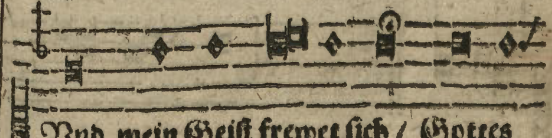 Vnd mein Geist frewet sich / Gottes